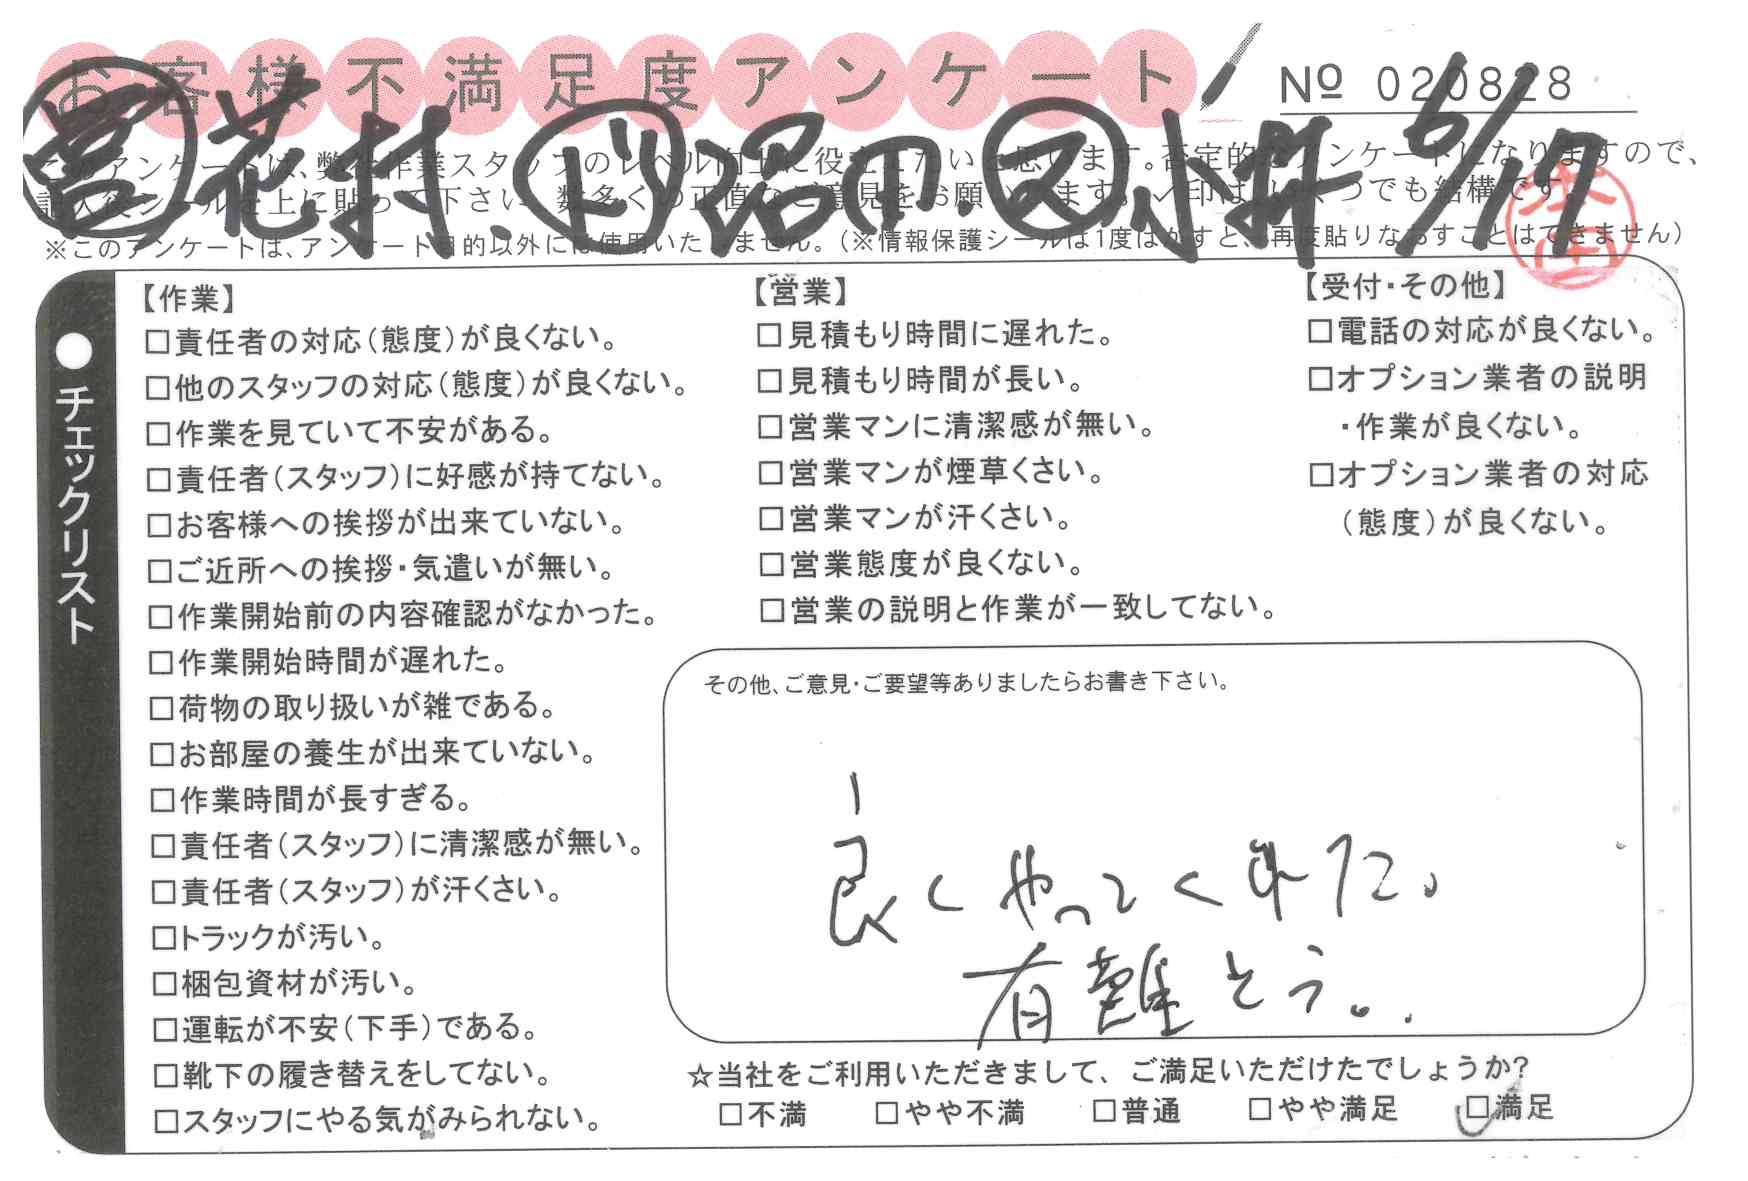 お客様不満足度アンケート
№ 020828
営 花村.ド沼田.ス小井 6/17
このアンケートは、弊社作業スタッフのレベル向上に役立てたいと思います。否定的なアンケートになりますので、
記入後シールを上に貼って下さい。数多くの正直なご意見をお願いします。✓印は、いくつでも結構です。
※このアンケートは、アンケート目的以外には使用いたしません。（※情報保護シールは1度はがすと、再度貼りなおすことはできません）
●チェックリスト
【作業】
□責任者の対応（態度）が良くない。
□他のスタッフの対応（態度）が良くない。
□作業を見ていて不安がある。
□責任者（スタッフ）に好感が持てない。
□お客様への挨拶が出来ていない。
□ご近所への挨拶・気遣いが無い。
□作業開始前の内容確認がなかった。
□作業開始時間が遅れた。
□荷物の取り扱いが雑である。
□お部屋の養生が出来ていない。
□作業時間が長すぎる。
□責任者（スタッフ）に清潔感が無い。
□責任者（スタッフ）が汗くさい。
□トラックが汚い。
□梱包資材が汚い。
□運転が不安（下手）である。
□靴下の履き替えをしてない。
□スタッフにやる気がみられない。
【営業】
□見積もり時間に遅れた。
□見積もり時間が長い。
□営業マンに清潔感が無い。
□営業マンが煙草くさい。
□営業マンが汗くさい。
□営業態度が良くない。
□営業の説明と作業が一致してない。
【受付・その他】
□電話の対応が良くない。
□オプション業者の説明
・作業が良くない。
□オプション業者の対応
（態度）が良くない。
その他、ご意見・ご要望等ありましたらお書き下さい。
良くやってくれた。
有難とう。
☆当社をご利用いただきまして、ご満足いただけたでしょうか?
□不満 □やや不満 □普通 □やや満足 □満足